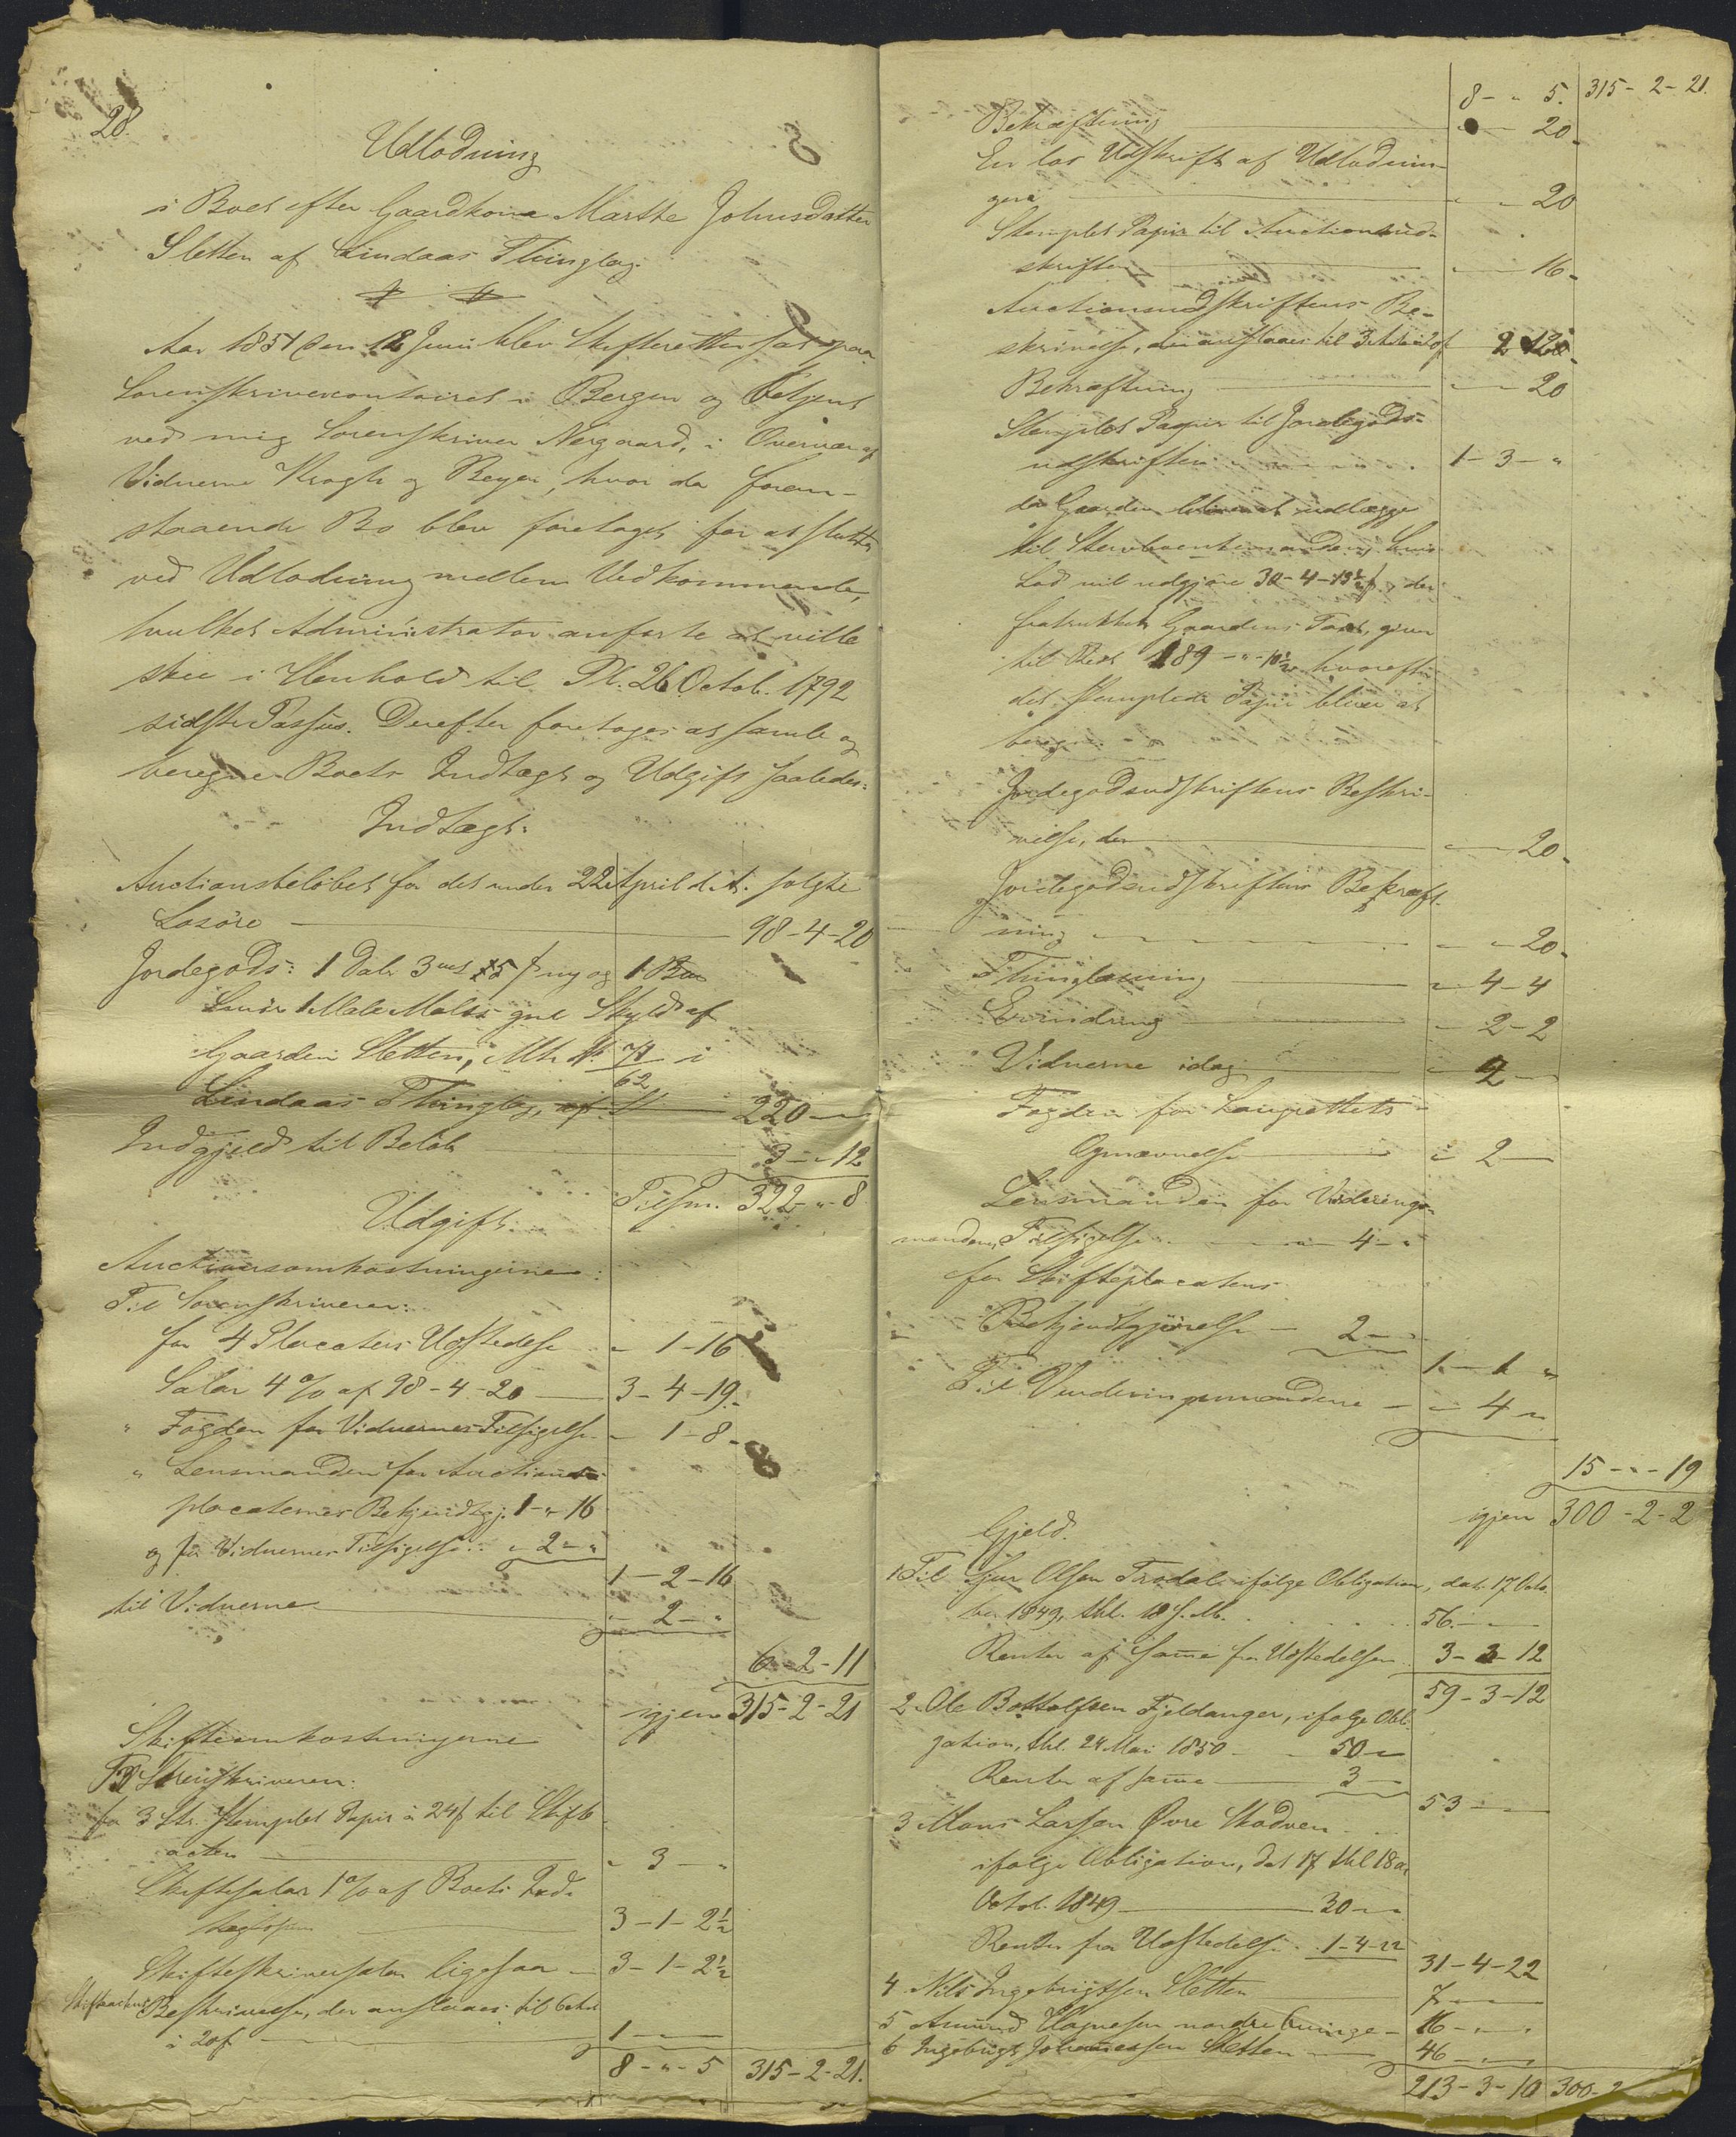 28.
Udlodning
i Boet efter Gaardkone Marthe Johnsdatter
Sletten af Lindaas Thinglag.
Aar 1851 den 12 Juni blev Skifteretten sat paa
Sorenskrivercontoiret i Bergen og betjent
ved mig Sorenskriver Nergaard, i Overvær af
Vidnerne Krogh og Beyer, hvor da foran-
staaende Bo blev foretaget for at slutte
ved Udlodning mellem Vedkommende,
hvilket Administrator anførte at ville
skee i Henhold til Pl. 26 Octob. 1792
sidste Passus. Derefter foretoges at samle og
beregne Boets Indtægt og Udgift saaledes:
Indtægt:
Auctionsbeløbet for det under 22 April d. A. solgte
Løsøre 98-4-20
Jordegods: 1 Daler 3 ort 15 s ny og 1 Bua
Laus 1 Male Malts gml Skyld af
Gaarden Sletten, Mtr. N. 71 i
62
Lindaas Thinglag, 220-
Indgjeld til Beløb 3-"-12
Tilsm. 322-"-8
Udgift:
Auctionsomkostningerne:
Til Sorenskriveren:
for 4 Placaters Udstedelse " 1-16
Salar 4% af 98-4-20 3-4-19.
" Fogden for Vidnernes Tilsigelse - 1-8
" Lensmanden for Auctions-
placaternes Bekjendtgj. 1-"-16
og for Vidnernes Tilsigelse: " 2-"
1-2-16
til Vidnerne - 2-"
6-2-11
igjen 315-2-21
Skifteomkostningerne
Til Sorenskriveren:
for 3 Stk. stemplet Papir à 24 s til Skifte
acten " 3-"
Skiftesalar 1% af Boets Ind-
tægtssum 3-1-2½
Skifteskriversalar ligesaa 3-1-2½
Skifteactens Beskrivelse, der ansluaes til 6 Ark
à 20 s 1-
8-"-5 315-2-21.
8-"-5. 315-2-21.
Bekræftning 20
En løs Udskrift af Udlodnin-
gen 20
Stemplet Papir til Auctionsud-
skriften 16
Auctionsudskriftens Be-
skrivelse, der anslaaes til 3 Ark à 20 s 2 12
Bekræftning 20
Stemplet Papir til Jordegods-
udskriften 1-3-"
da Gaarden bliver at udlægge
til Stervboenkemanden, hvis
Lod vil udgjøre 30-4-13½ s, der
fratrukket Gaardens Taxt, giver
til Rest 189-"-10½ hvorefter
det stemplede Papir bliver at
beregne.
Jordegodsudskriftens Beskri-
velse, der 20
Jordegodsudskriftens Bekræft-
ning 20
Thinglæsning 4-4
Erindring 2-2
Vidnerne idag 2-
Fogden for Laugrettets
Opnævnelse " 2-
Lensmanden for Vurderings-
mændenes Tilsigelse 4-"
for Skifteplacatens
Bekjendtgjørelse - 2-"
1-1 "
Til Vurderingsmændene - 4 "
15-"-19
igjen 300-2-2
Gjeld.
1. Til Sjur Olsen Trodal ifølge Obligation, dat. 17 Octo-
ber 1849, thl. 18 s. M. 56-
Renter af samme fra Udstedelsen 3-3-12
59-3-12
2. Ole Bottolfsen Fjeldanger, ifølge Obli-
gation, thl. 24 Mai 1850 - 50-
Renter af samme 3-
53-
3 Mons Larsen Øvre Skodven
ifølge Obligation, dat 17 thl 18de
Octob. 1849 30-
Renter fra Udstedelsen 1-4-22
31-4-22
4. Nils Ingebrigtsen Sletten 7-
5 Amund Hagnesen nordre Kvinge 16-
6 Ingebrigt Johannessen Sletten 46-
213-3-10 300-2